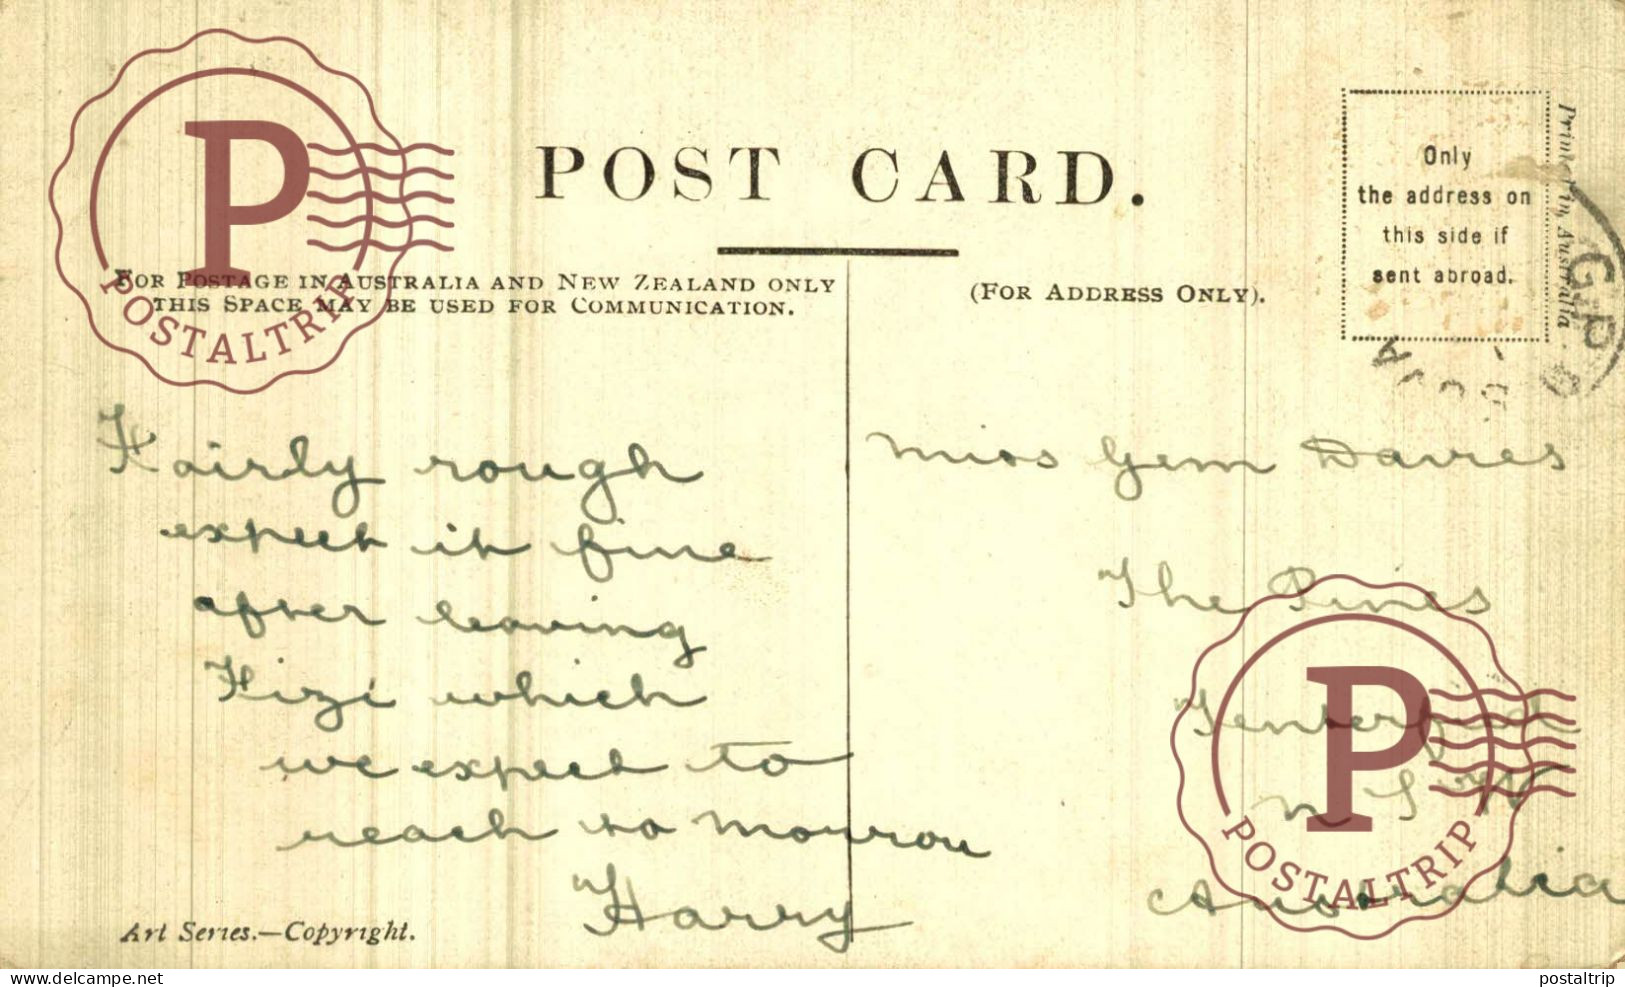 POST CARD.
FOR POSTAGE IN AUSTRALIA AND NEW ZEALAND ONLY
THIS SPACE MAY BE USED FOR COMMUNICATION.
(FOR ADDRESS ONLY).
Only
the address on
this side if
sent abroad.
Printed in Australia.
GPO
P
POSTALTRIP
Fairly rough
expect it fine
after leaving
Fizi which
we expect to
reach to morrow
Harry
Miss Gem Davies
The Pines
Tenterfield
N S W
Australia
P
POSTALTRIP
Art Series.—Copyright.
delcampe.net
postaltrip